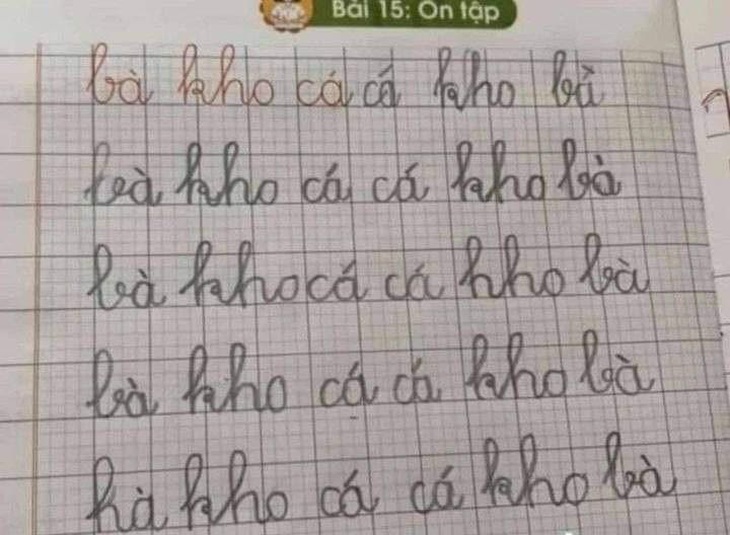 Bài 15: Ôn tập
bà kho cá cá kho bà
bà kho cá cá kho bà
bà kho cá cá kho bà
bà kho cá cá kho bà
hà kho cá cá kho bà